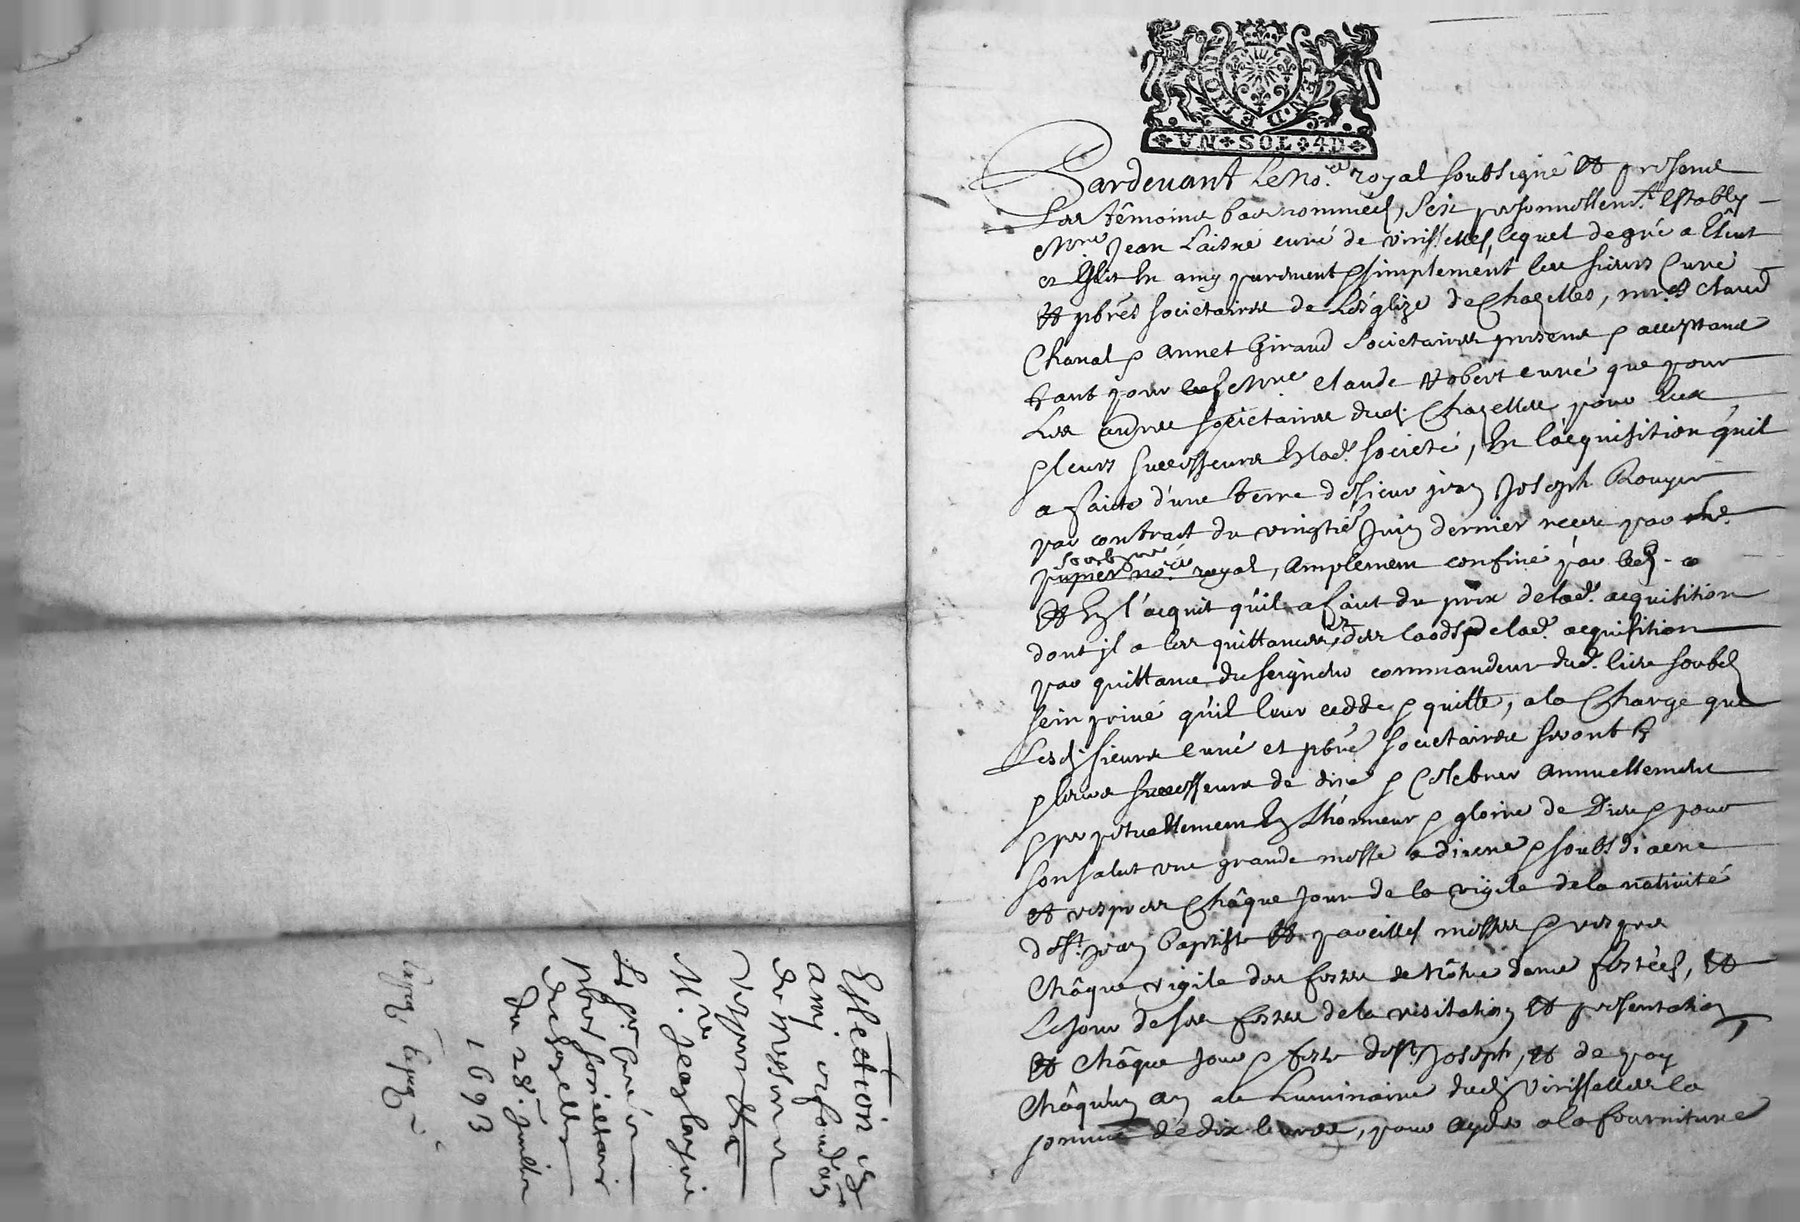 GEN. DE
VN SOL 4D
Pardevant le no.re royal soubsigné et presens
les têmoins bas nommés, s'est personnellem.t estably
M.re Jean Laisné curé de Virisselles, lequel de gré a Esleut
et Eslit En amy purement et simplement les sieurs Curé
et pbrês societaires de L'esglize de Chazelles, m.res Claud
Chanal et Annet Giraud societaires presens et acceptans
tant pour M.re Claude Robert curé que pour
Les autres societaires dud. Chazelles pour Eux
et leurs successeurs En lad. societé, En l'acquisition qu'il
a faite d'une terre de sieur jean Joseph Rouyer
par contrat du vingtie Juin dernier receu par
no.re royal, amplement confiné par led.
et En l'acquit qu'il a faict du prix de lad. acquisition
dont il a les quittances, des laods de lad. acquisition
par quittance du seigneur commandeur dud. lieu soubs
sein privé qu'il leur cedde et quitte, a la Charge que
Lesd. sieurs curé et pbrê societaires seront
et leurs successeurs de dire et Celebrer annuellement
et perpetuellement En L'honneur et gloire de Dieu et pour
son salut une grande messe a diacre et soubs diacre
et vespres Châque jour de la vigile de la nativité
de S.t jean Baptiste et pareilles messes et vespres
Châque vigile des festes de Nôtre dame festées, et
Le jour de ses festes de la visitation et presentation
et Châque jour et feste de S.t Joseph, et de pay
Châqu'un an au Luminaire dud. Virisselles la
somme de dix livres, pour ayder a la fourniture
Eslection en
amy
de messire
M.re Jean laisné
Les Srs Curé et
pbres sociétaires
de Chazelles
du 28.e Juillet
1693